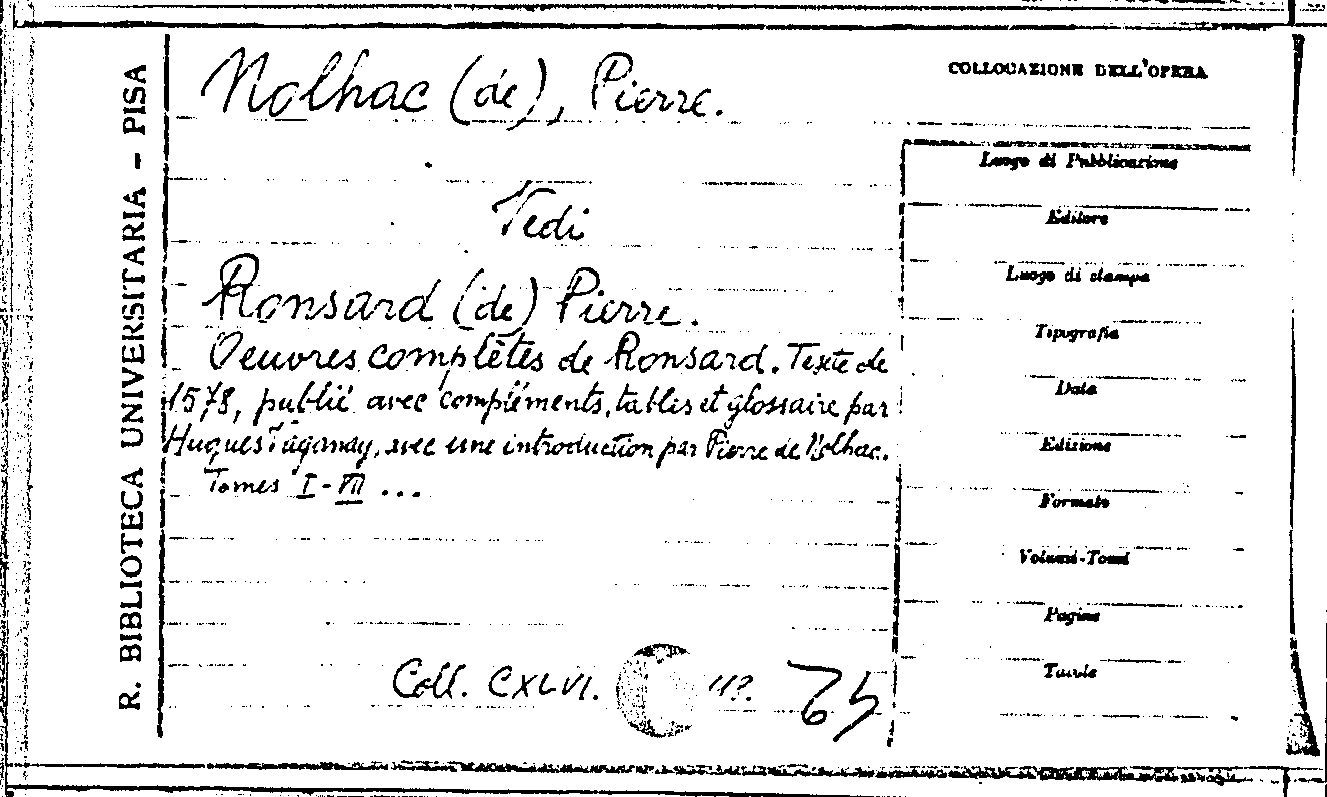 R. BIBLIOTECA UNIVERSITARIA - PISA
Nolhac (de), Pierre.
Vedi
Ronsard (de) Pierre.
Oeuvres complètes de Ronsard. Texte de
1578, publié avec compléments, tables et glossaire par
Hugues Vaganay, avec une introduction par Pierre de Nolhac.
Tomes I-VII ...
Coll. CXLVI.
COLLOCAZIONE DELL'OPERA
Luogo di Pubblicazione
Editore
Luogo di stampa
Tipografia
Data
Edizione
Formato
Volumi-Tomi
Pagine
Tavole